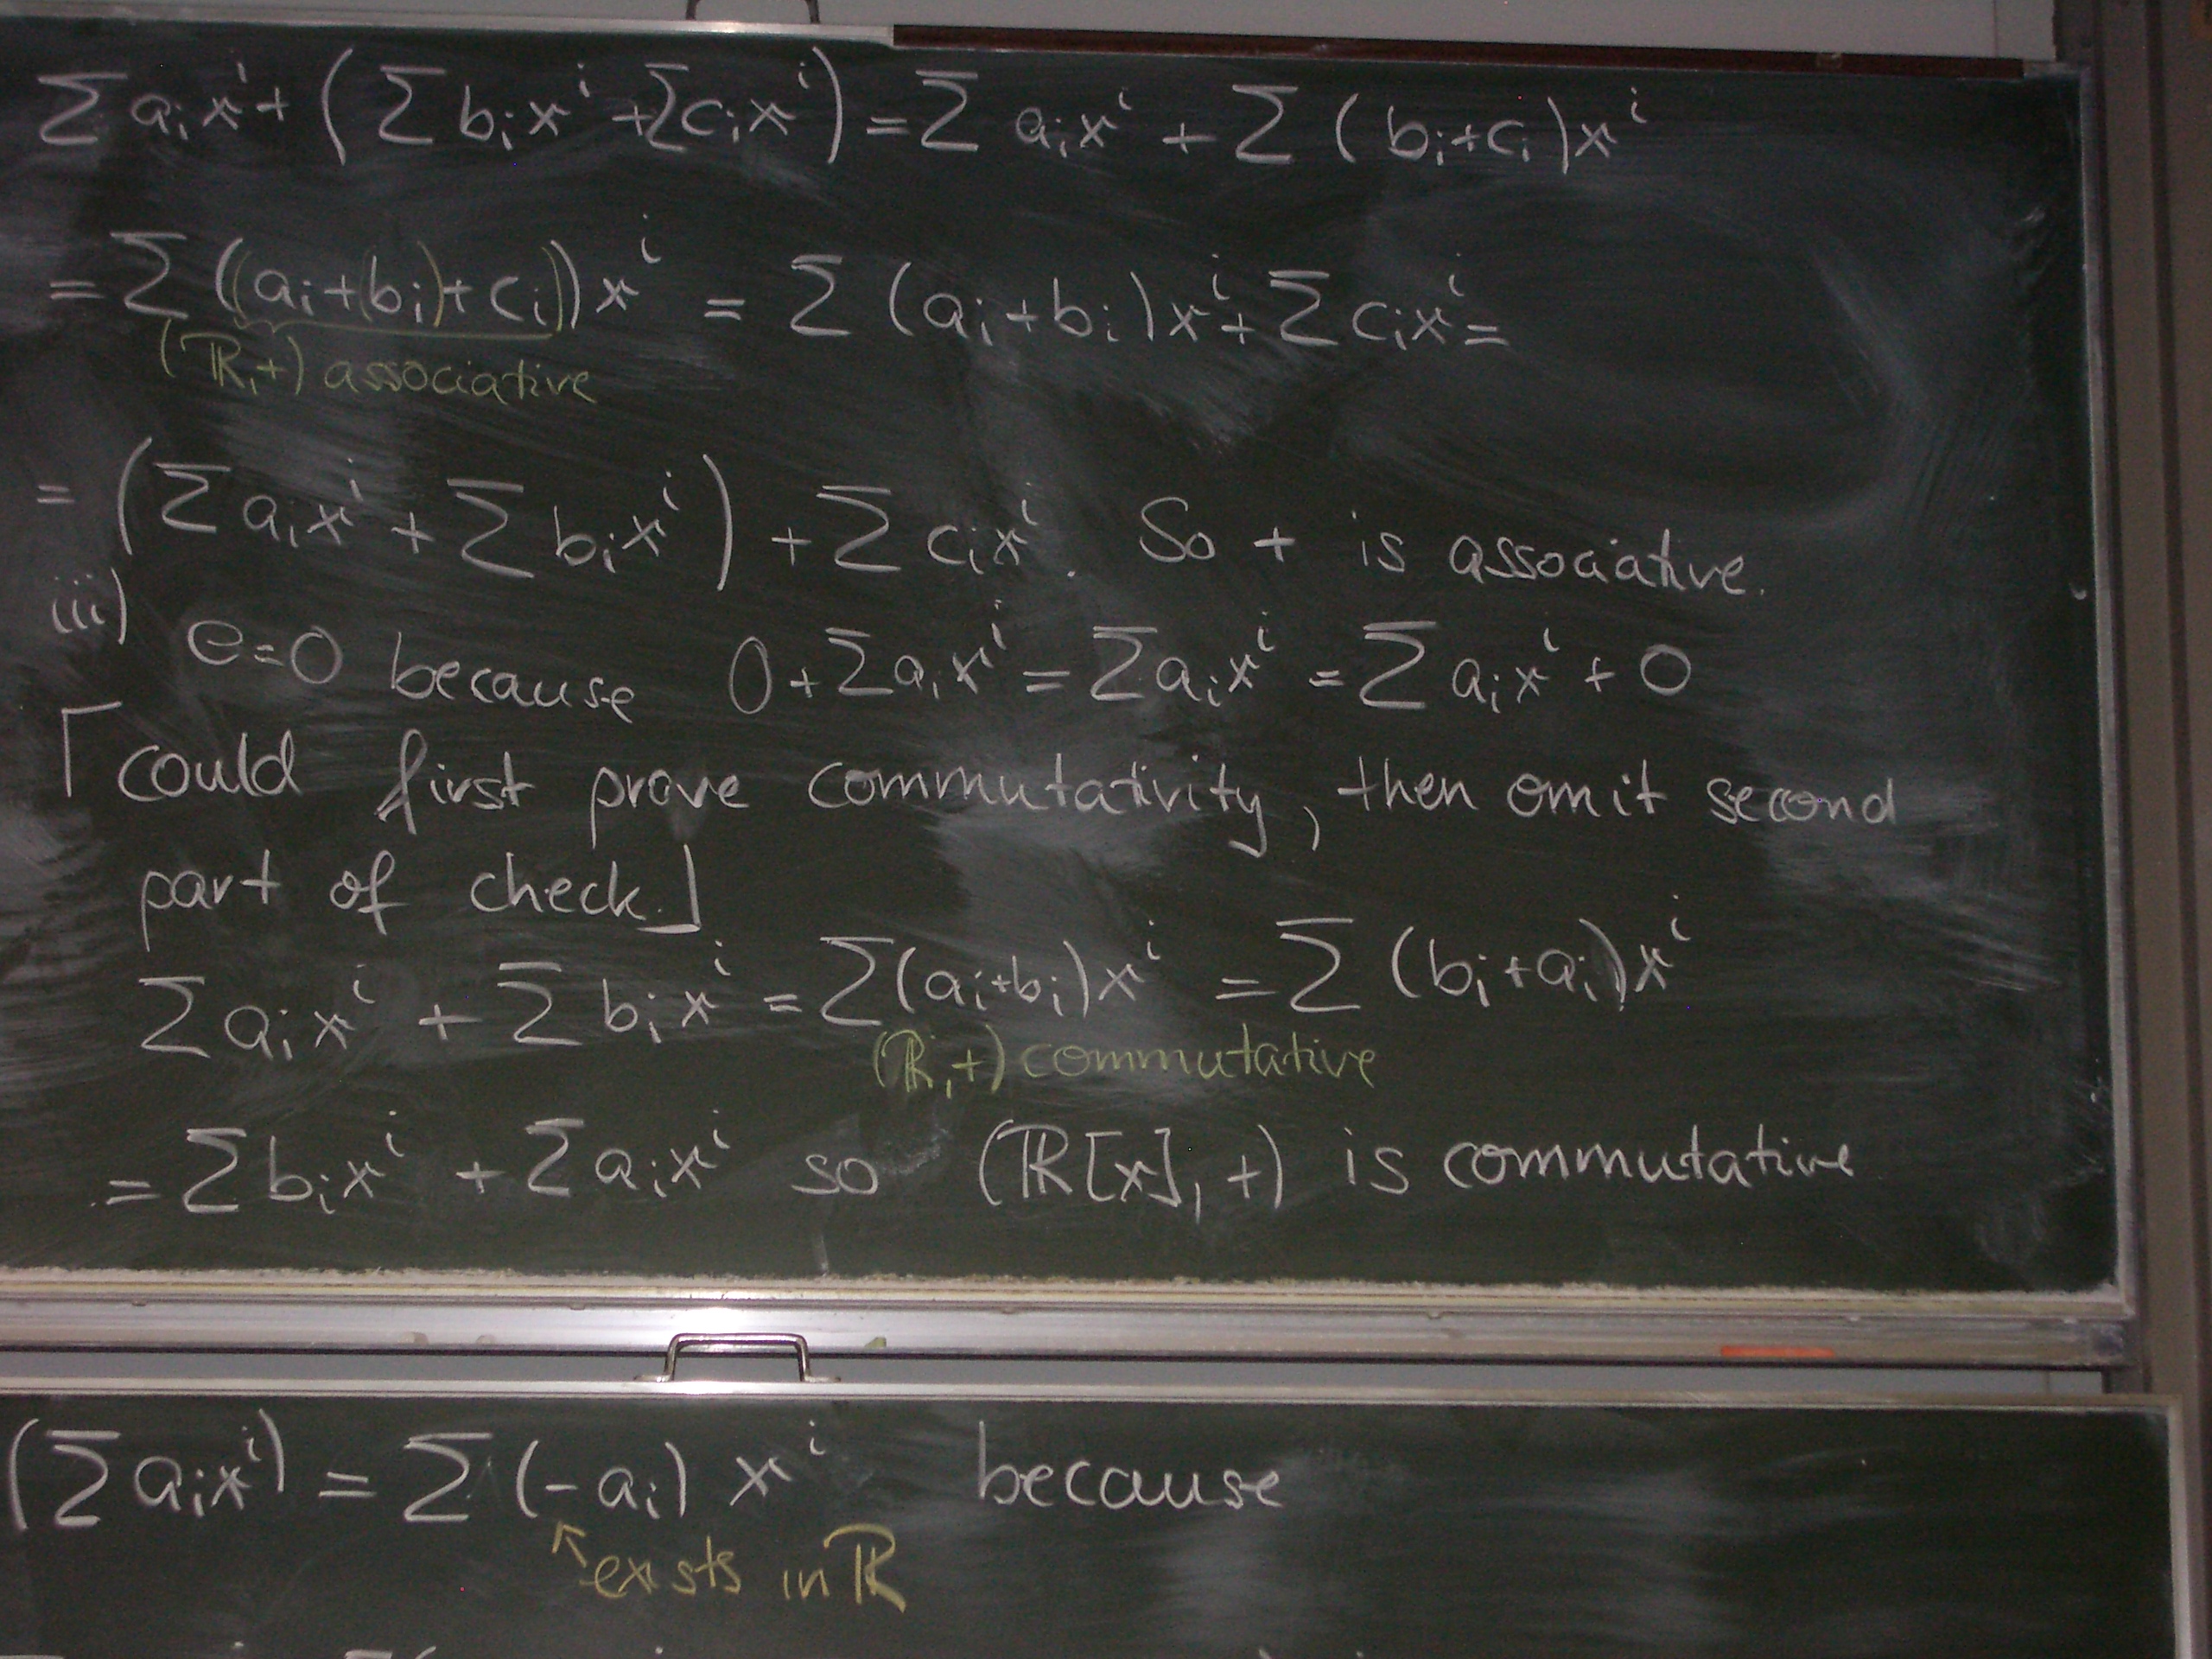 Σ aᵢxⁱ + (Σ bᵢxⁱ + Σ cᵢxⁱ) = Σ aᵢxⁱ + Σ (bᵢ+cᵢ)xⁱ
= Σ ((aᵢ+(bᵢ)+cᵢ))xⁱ = Σ (aᵢ+bᵢ)xⁱ + Σ cᵢxⁱ =
(ℝ,+) associative
= (Σ aᵢxⁱ + Σ bᵢxⁱ) + Σ cᵢxⁱ. So + is associative.
iii) e=0 because 0 + Σ aᵢxⁱ = Σ aᵢxⁱ = Σ aᵢxⁱ + 0
⌈could first prove commutativity, then omit second
part of check.⌋
Σ aᵢxⁱ + Σ bᵢxⁱ = Σ(aᵢ+bᵢ)xⁱ = Σ (bᵢ+aᵢ)xⁱ
(ℝ,+) commutative
= Σ bᵢxⁱ + Σ aᵢxⁱ so (ℝ[x],+) is commutative
(Σ aᵢxⁱ) = Σ (-aᵢ) xⁱ because
↖ exists in ℝ